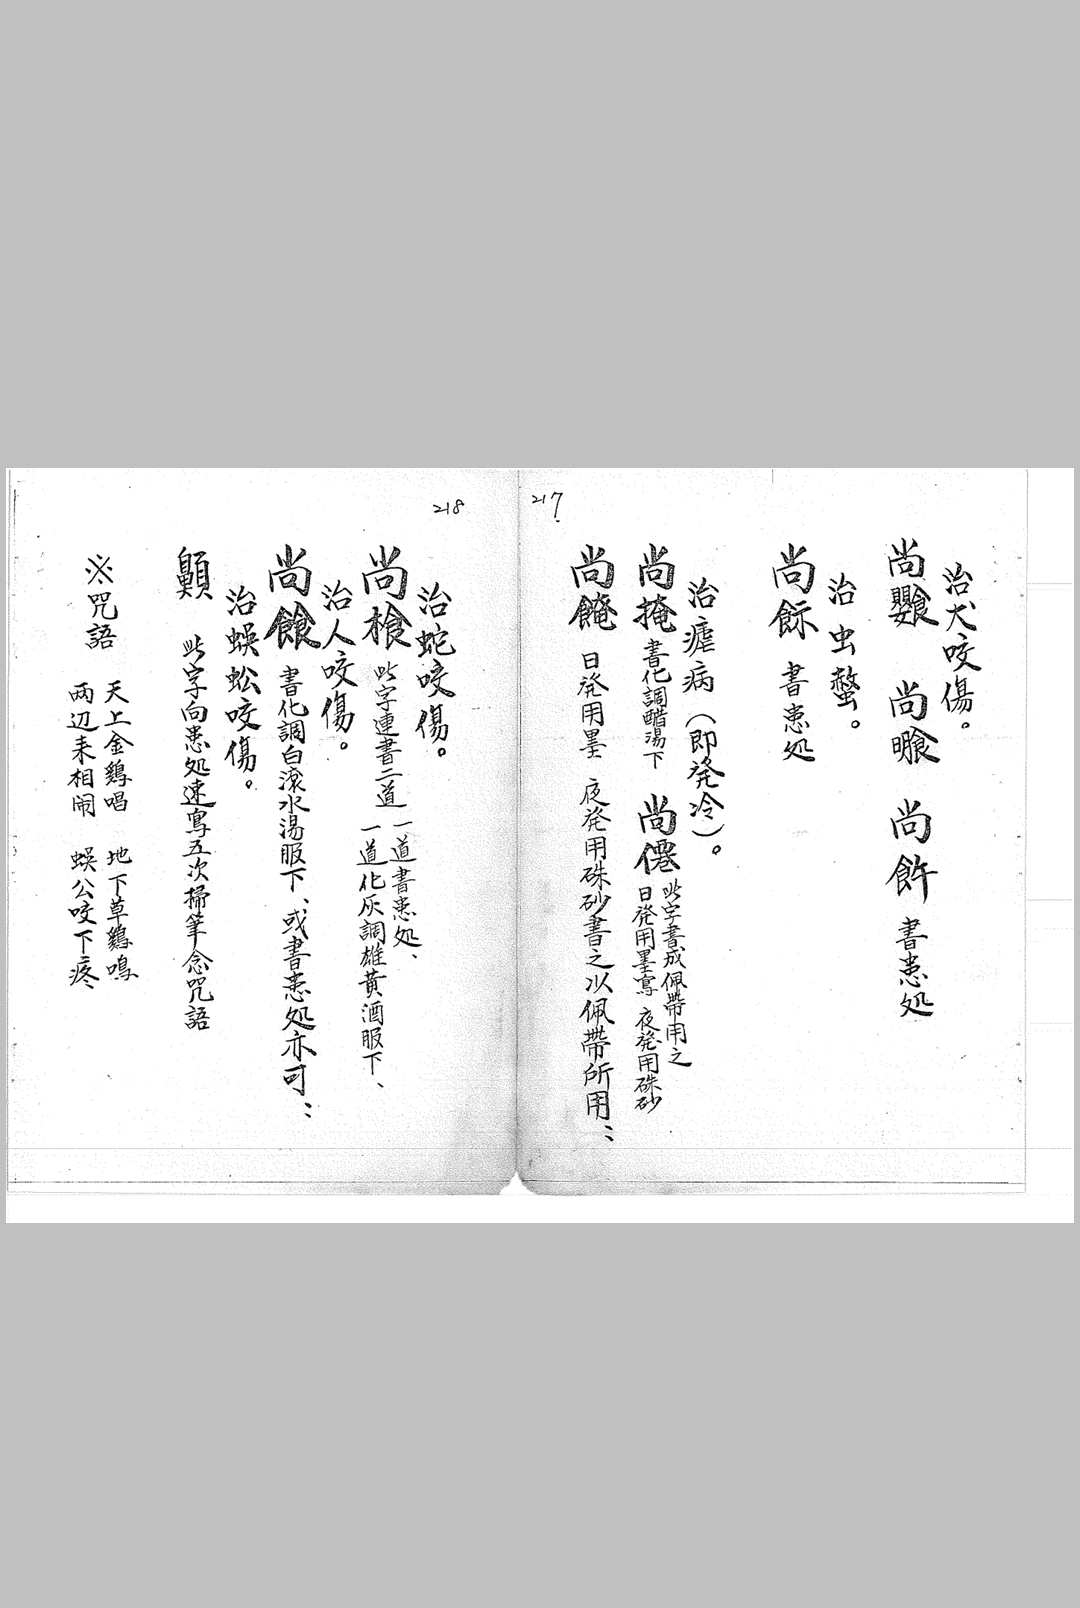 217
治犬咬傷。
尚 尚 尚 書患処
治虫螫。
尚 書患処
治瘧病（即発冷）。
尚掩 書化調醋湯下 尚僊 此字書成佩帶用之
日発用墨寫 夜発用硃砂
尚餣 日発用墨 夜発用硃砂書之以佩帶所用：
218
治蛇咬傷。
尚 此字連書二道 一道書患処、
一道化灰調雄黃酒服下、
治人咬傷。
尚 書化調白滚水湯服下、或書患処亦可：
治蜈蚣咬傷。
此字向患処速寫五次掃筆念咒語
※咒語 天上金鷄唱 地下草鷄鳴
両辺来相闹 蜈公咬下疼